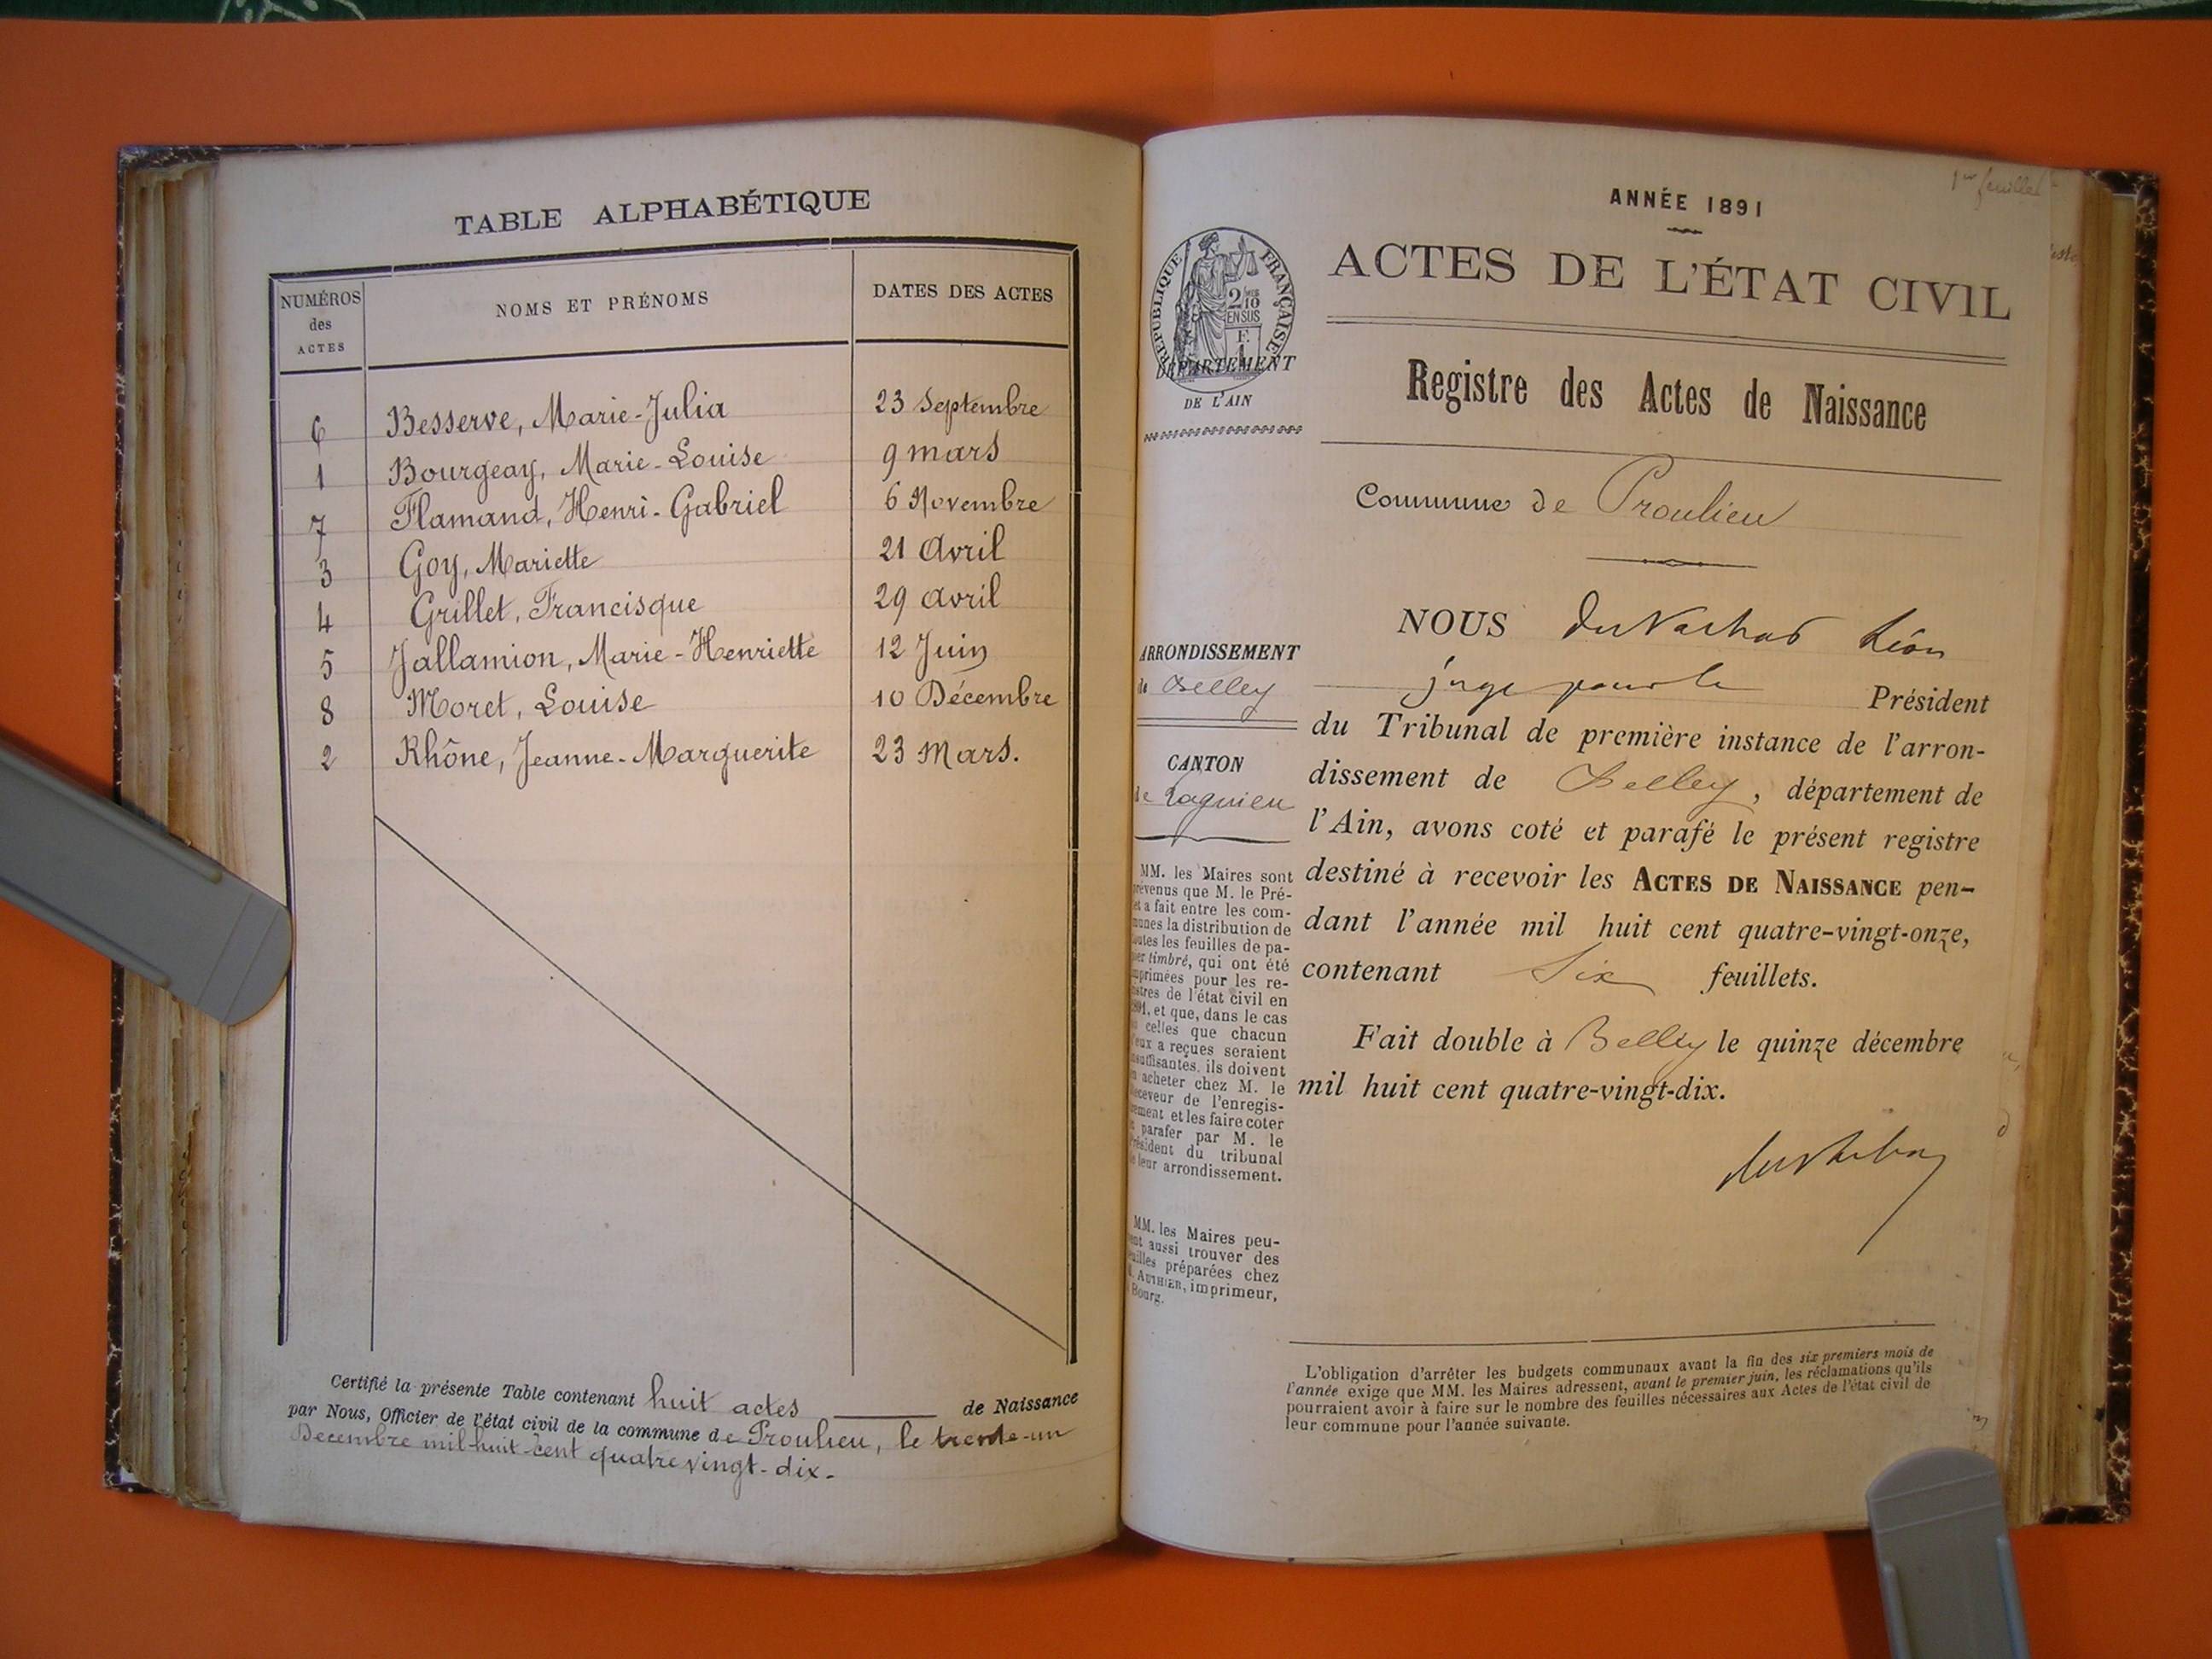 TABLE ALPHABÉTIQUE
NUMÉROS
des
ACTES
NOMS ET PRÉNOMS
DATES DES ACTES
6 Besserve, Marie-Julia 23 Septembre
1 Bourgeay, Marie-Louise 9 mars
7 Flamand, Henri-Gabriel 6 Novembre
3 Goy, Mariette 21 Avril
4 Grillet, Francisque 29 avril
5 Jallamion, Marie-Henriette 12 Juin
8 Moret, Louise 10 Décembre
2 Rhône, Jeanne-Marguerite 23 Mars.
Certifié la présente Table contenant huit actes de Naissance
par Nous, Officier de l'état civil de la commune de Proulieu, le trente-un
Décembre mil-huit-cent quatre vingt-dix-
1er feuillet
ANNÉE 1891
ACTES DE L'ÉTAT CIVIL
RÉPUBLIQUE FRANÇAISE
2/10
EN SUS
F.
1
DÉPARTEMENT
DE L'AIN
Registre des Actes de Naissance
Commune de Proulieu
ARRONDISSEMENT
de Belley
CANTON
de Lagnieu
MM. les Maires sont
prévenus que M. le Pré-
fet a fait entre les com-
munes la distribution de
toutes les feuilles de pa-
pier timbré, qui ont été
imprimées pour les re-
gistres de l'état civil en
1891, et que, dans le cas
où celles que chacun
d'eux a reçues seraient
insuffisantes, ils doivent
en acheter chez M. le
receveur de l'enregis-
trement et les faire coter
et parafer par M. le
Président du tribunal
de leur arrondissement.
MM. les Maires peu-
vent aussi trouver des
feuilles préparées chez
M. AUTHIER, imprimeur,
à Bourg.
NOUS Léon
juge pour le Président
du Tribunal de première instance de l'arron-
dissement de Belley, département de
l'Ain, avons coté et parafé le présent registre
destiné à recevoir les ACTES DE NAISSANCE pen-
dant l'année mil huit cent quatre-vingt-onze,
contenant Six feuillets.
Fait double à Belley le quinze décembre
mil huit cent quatre-vingt-dix.
L'obligation d'arrêter les budgets communaux avant la fin des six premiers mois de
l'année exige que MM. les Maires adressent, avant le premier juin, les réclamations qu'ils
pourraient avoir à faire sur le nombre des feuilles nécessaires aux Actes de l'état civil de
leur commune pour l'année suivante.